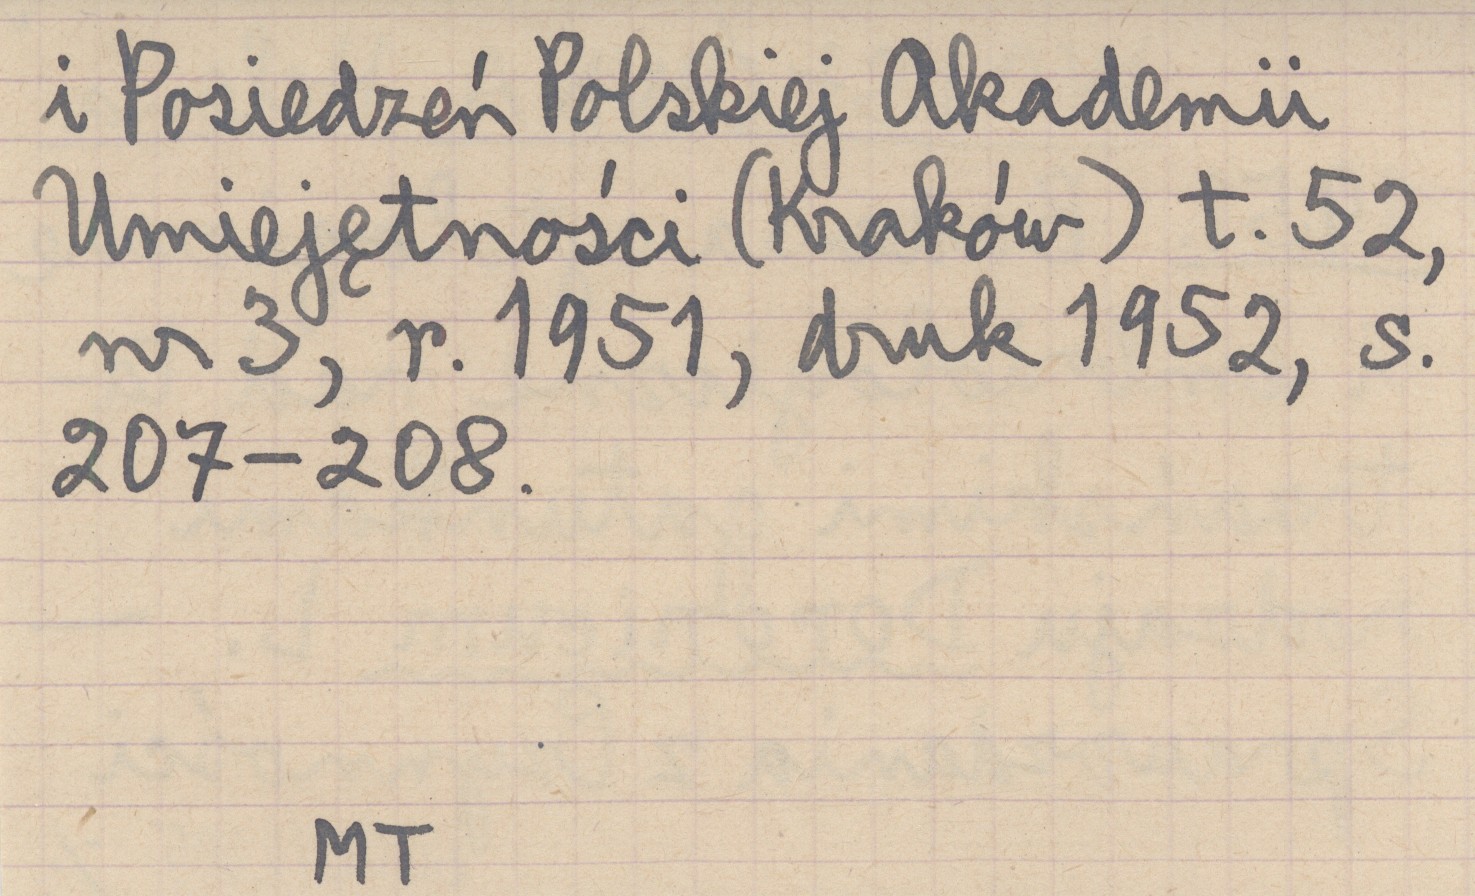 i Posiedzeń Polskiej Akademii
Umiejętności (Kraków) t. 52,
nr 3, r. 1951, druk 1952, s.
207-208.
MT